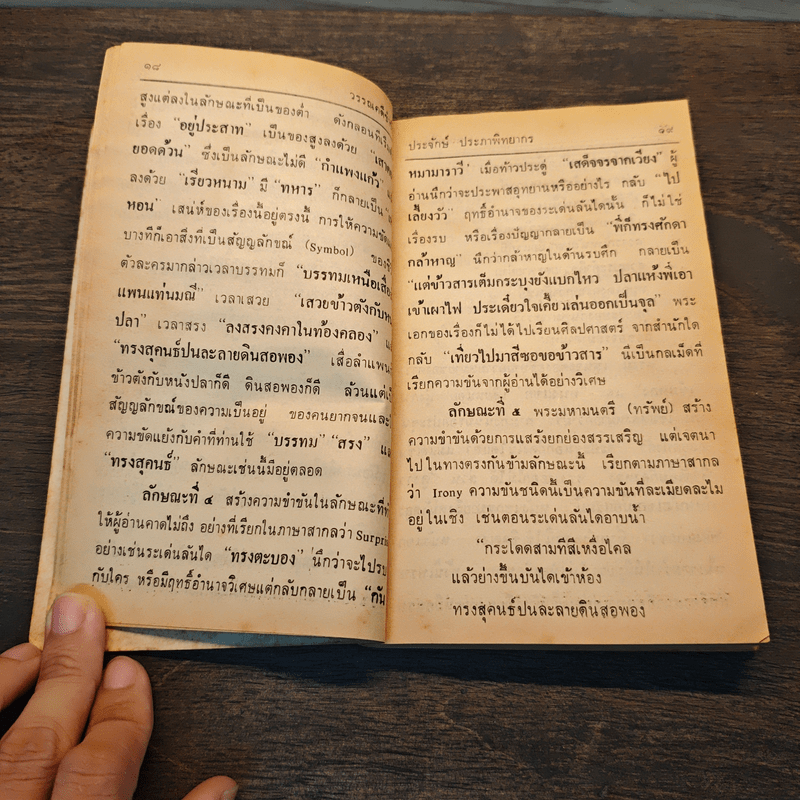 ๑๘
วรรณคดี
สูงแต่ลงในลักษณะที่เป็นของต่ำ ดังกลอนที่
เรื่อง “อยู่ประสาท” เป็นของสูงลงด้วย
ยอดด้วน” ซึ่งเป็นลักษณะไม่ดี “กำแพงแก้ว”
ลงด้วย “เรียวหนาม” มี “ทหาร” ก็กลายเป็น
หอน” เสน่ห์ของเรื่องนี้อยู่ตรงนี้ การให้ความขัด
บางทีก็เอาสิ่งที่เป็นสัญญลักขณ์ (Symbol) ของ
ตัวละครมากล่าวเวลาบรรทมก็ “บรรทมเหนือเสื่อ
แพนแท่นมณี” เวลาเสวย “เสวยข้าวตังกับ
ปลา” เวลาสรง “ลงสรงคงคาในท้องคลอง”
“ทรงสุคนธ์ปนละลายดินสอพอง” เสื่อลำแพน
ข้าวตังกับหนังปลาก็ดี ดินสอพองก็ดี ล้วนแต่
สัญญูลักขณ์ของความเป็นอยู่ ของคนยากจนและ
ความขัดแย้งกับคำที่ท่านใช้ “บรรทม” “สรง”
“ทรงสุคนธ์” ลักษณะเช่นนี้มีอยู่ตลอด
ลักษณะที่ ๔ สร้างความขำขันในลักษณะที่
ให้ผู้อ่านคาดไม่ถึง อย่างที่เรียกในภาษาสากลว่า Surpri
อย่างเช่นระเด่นลันได “ทรงตะบอง” นึกว่าจะไปรบ
กับใคร หรือมีฤทธิ์อำนาจวิเศษแต่กลับกลายเป็น “กัน
ประจักษ์ ประภาพิทยากร
๑๙
หมามาราวี” เมื่อท้าวประดู่ “เสด็จจรจากเวียง” ผู้
อ่านนึกว่าจะประพาสอุทยานหรืออย่างไร กลับ “ไป
เลี้ยงวัว” ฤทธิ์อำนาจของระเด่นลันไดนั้น ก็ไม่ใช่
เรื่องรบ หรือเรื่องปัญญากลายเป็น “พี่ก็ทรงศักดา
กล้าหาญ” นึกว่ากล้าหาญในด้านรบศึก กลายเป็น
“แต่ข้าวสารเต็มกระบุงยังแบกไหว ปลาแห้งพี่เอา
เข้าเผาไฟ ประเดี๋ยวใจเคี้ยวเล่นออกเป็นจุล” พระ
เอกของเรื่องก็ไม่ได้ไปเรียนศิลปศาสตร์ จากสำนักใด
กลับ “เที่ยวไปมาสีซอขอข้าวสาร” นี่เป็นกลเม็ดที่
เรียกความขันจากผู้อ่านได้อย่างวิเศษ
ลักษณะที่ ๕ พระมหามนตรี (ทรัพย์) สร้าง
ความขำขันด้วยการแสร้งยกย่องสรรเสริญ แต่เจตนา
ไปในทางตรงกันข้ามลักษณะนี้ เรียกตามภาษาสากล
ว่า Irony ความขันชนิดนี้เป็นความขันที่ละเมียดละไม
อยู่ในเชิง เช่นตอนระเด่นลันไดอาบน้ำ
“กระโดดสามทีสีเหงื่อไคล
แล้วย่างขึ้นบันไดเข้าห้อง
ทรงสุคนธ์ปนละลายดินสอพอง